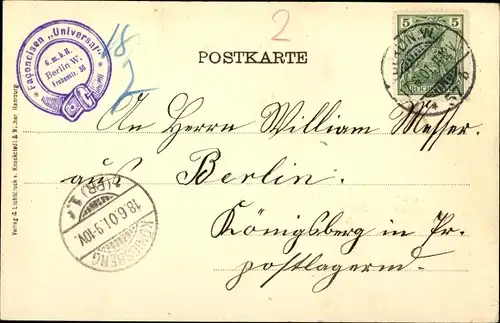 Façoneisen „Universal“
G.m.b.H.
Berlin W.
18
2
2
POSTKARTE
5
5
An Herrn William Messer.
aus Berlin.
Königsberg in Pr.
postlagernd.
KÖNIGSBERG
18.6.01.9-10V.
(PR.) 1.
Verlag & Lichtdruck v. Knackstedt & Näther, Hamburg